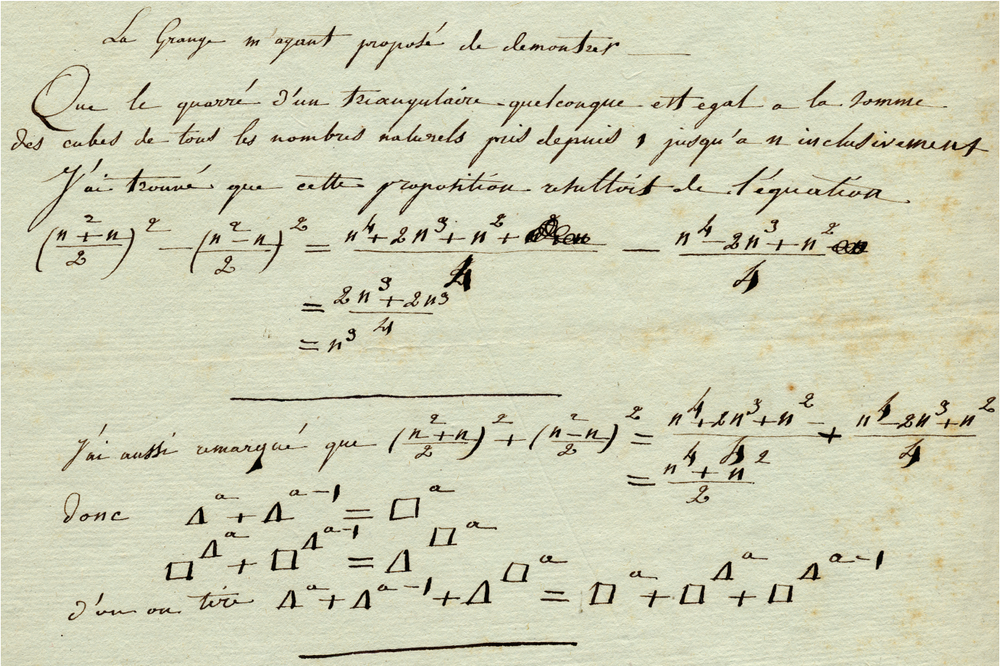 La Grange m'ayant proposé de demontrer
Que le quarré d'un triangulaire quelconque est egal a la somme
des cubes de tous les nombres naturels pris depuis 1 jusqu'a n inclusivement
J'ai trouvé que cette proposition resultoit de l'équation
((n²+n)/2)² − ((n²−n)/2)² = (n⁴+2n³+n²+)/4 − (n⁴−2n³+n²)/4
= (2n³+2n³)/4
= n³
J'ai aussi remarqué que ((n²+n)/2)² + ((n²−n)/2)² = (n⁴+2n³+n²)/4 + (n⁴−2n³+n²)/4
= (n⁴+n²)/2
donc Δᵃ + Δᵃ⁻¹ = □ᵃ
□^Δᵃ + □^Δᵃ⁻¹ = Δ^□ᵃ
d'ou on tire Δᵃ + Δᵃ⁻¹ + Δ^□ᵃ = □ᵃ + □^Δᵃ + □^Δᵃ⁻¹